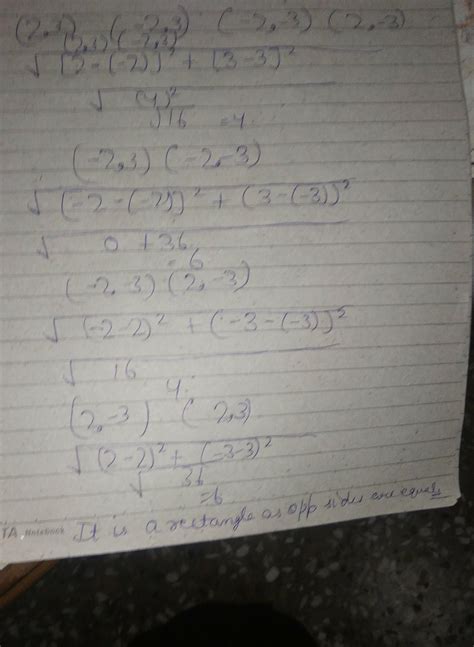 (2,3) (-2,3) (-2,-3) (2,-3)
(2,3) (-2,3)
√(2-(-2))² + (3-3)²
√(4)²
√16 = 4.
(-2,3) (-2,-3)
√(-2-(-2))² + (3-(-3))²
√0 + 36
= 6
(-2,-3) (2,-3)
√(-2-2)² + (-3-(-3))²
√16
4.
(2,-3) (2,3)
√(2-2)² + (-3-3)²
√36
= 6
TA Notebook It is a rectangle as opp sides are equal